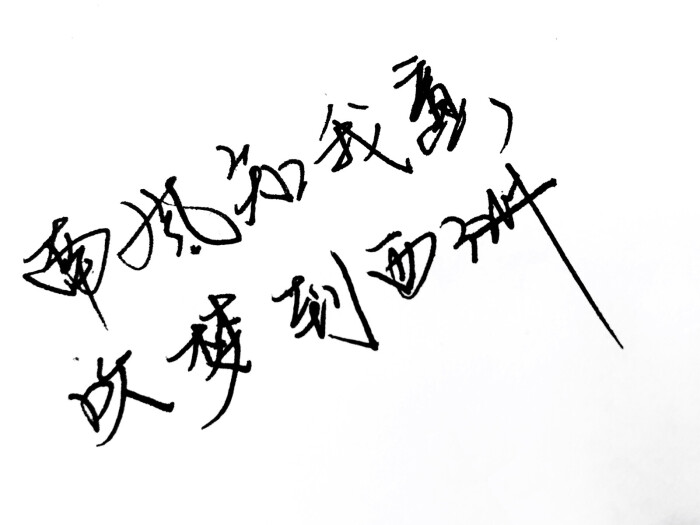 南风知我意,
吹梦到西洲